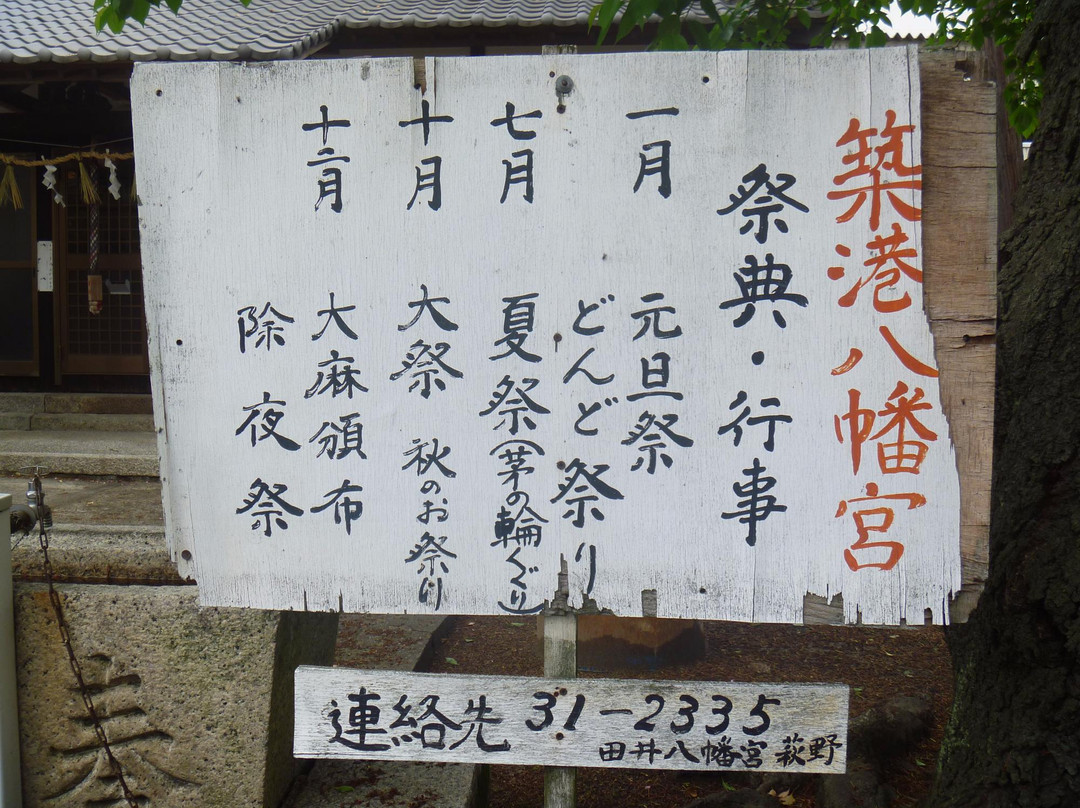 築港八幡宮
祭典・行事
一月 元旦祭
どんど祭り
七月 夏祭(茅の輪くぐり)
十月 大祭 秋のお祭り
十二月 大麻頒布
除夜祭
連絡先 31-2335
田井八幡宮 萩野